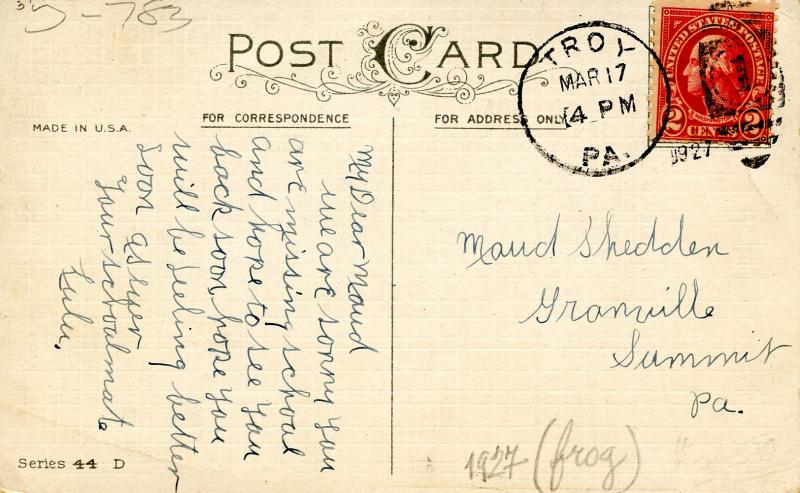 3
5-783
POST CARD
TROY
MAR 17
4 PM
PA.
1927
UNITED STATES POSTAGE
2 CENTS 2
MADE IN U.S.A.
FOR CORRESPONDENCE
FOR ADDRESS ONLY
My Dear Maud
we are sorry you
are missing school
and hope to see you
back soon hope you
will be feeling better
soon
your schoolmate
Lulu.
Maud Shedden
Granville
Summit
Pa.
Series 44 D
1927 (frog)